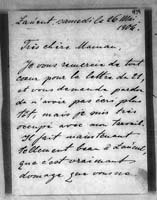 Lausent, samedi le 26 Mai,
Très chère Maman,
Je vous remercie de tout
cœur pour la lettre de 21,
et vous demande pardon
de n'avoir pas écris plus
tôt, mais je suis très
occupé avec mon travail.
Il fait maintenant
tellement beau à
que c'est vraiment
domage que vous ne